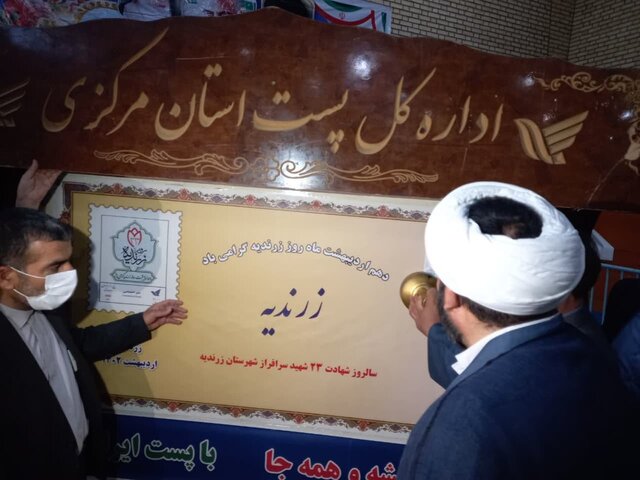 اداره کل پست استان مرکزی
دهم اردیبهشت ماه روز زرندیه گرامی باد
زرندیه
زرندیه
سالروز شهادت ۲۳ شهید سرافراز شهرستان زرندیه
اردیبهشت ۱۴۰۲
با پست
شه و همه جا